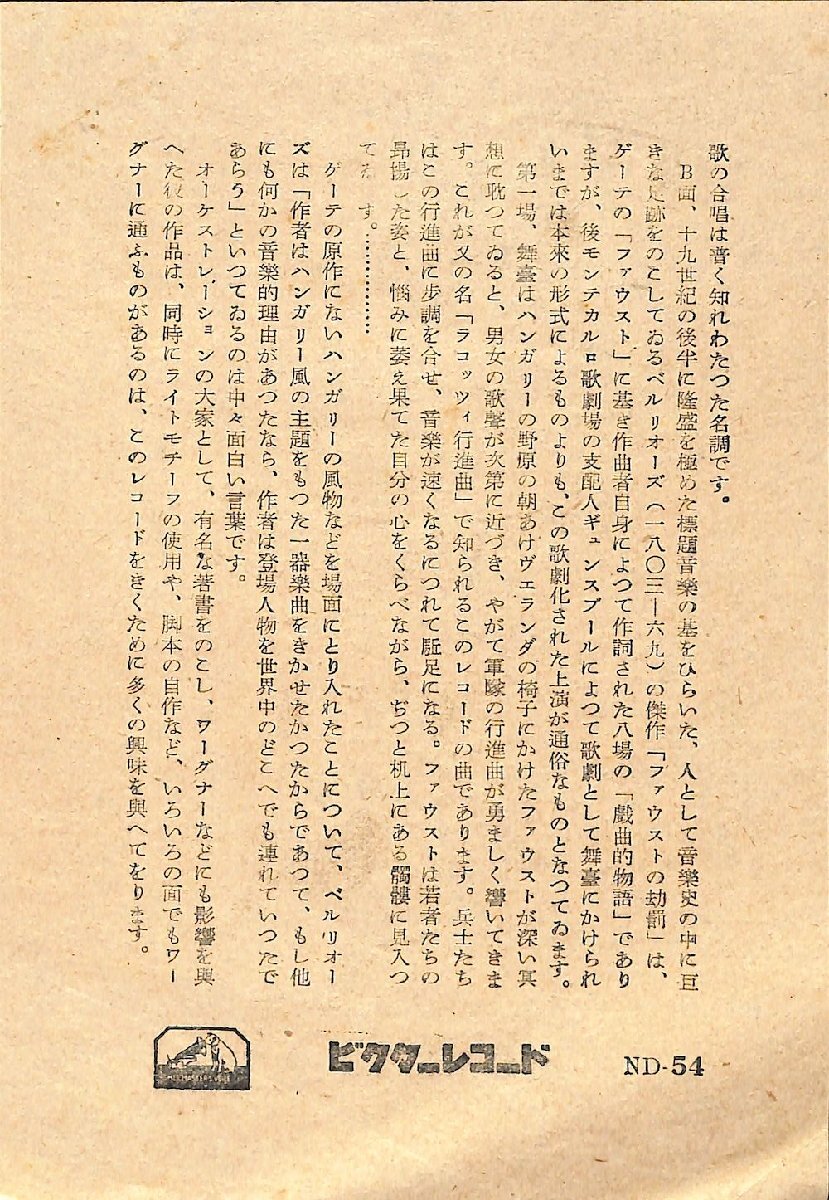 歌の合唱は普く知れわたつた名調です。
B面、十九世紀の後半に隆盛を極めた標題音樂の基をひらいた、人として音樂史の中に巨
きな足跡をのこしてゐるベルリオーズ(一八〇三―六九)の傑作「ファウストの劫罰」は、
ゲーテの「ファウスト」に基き作曲者自身によつて作詞された八場の「戲曲的物語」であり
ますが、後モンテカルロ歌劇場の支配人ギュンスブールによつて歌劇として舞臺にかけられ
いまでは本來の形式によるものよりも、この歌劇化された上演が通俗なものとなつてゐます。
第一場、舞臺はハンガリーの野原の朝あけヴェランダの椅子にかけたファウストが深い冥
想に耽つてゐると、男女の歌聲が次第に近づき、やがて軍隊の行進曲が勇ましく響いてきま
す。これが又の名「ラコッツィ行進曲」で知られるこのレコードの曲であります。兵士たち
はこの行進曲に步調を合せ、音樂が速くなるにつれて駈足になる。ファウストは若者たちの
昂揚した姿と、惱みに萎え果てた自分の心をくらべながら、ぢつと机上にある髑髏に見入つ
てゐます。……………
ゲーテの原作にないハンガリーの風物などを場面にとり入れたことについて、ベルリオー
ズは「作者はハンガリー風の主題をもつた一器樂曲をきかせたかつたからであつて、もし他
にも何かの音樂的理由があつたなら、作者は登場人物を世界中のどこへでも連れていつたで
あらう」といつてゐるのは中々面白い言葉です。
オーケストレーションの大家として、有名な著書をのこし、ワーグナーなどにも影響を與
へた彼の作品は、同時にライトモチーフの使用や、脚本の自作など、いろいろの面でもワー
グナーに通ふものがあるのは、このレコードをきくために多くの興味を與へてをります。
ビクターレコード
ND-54